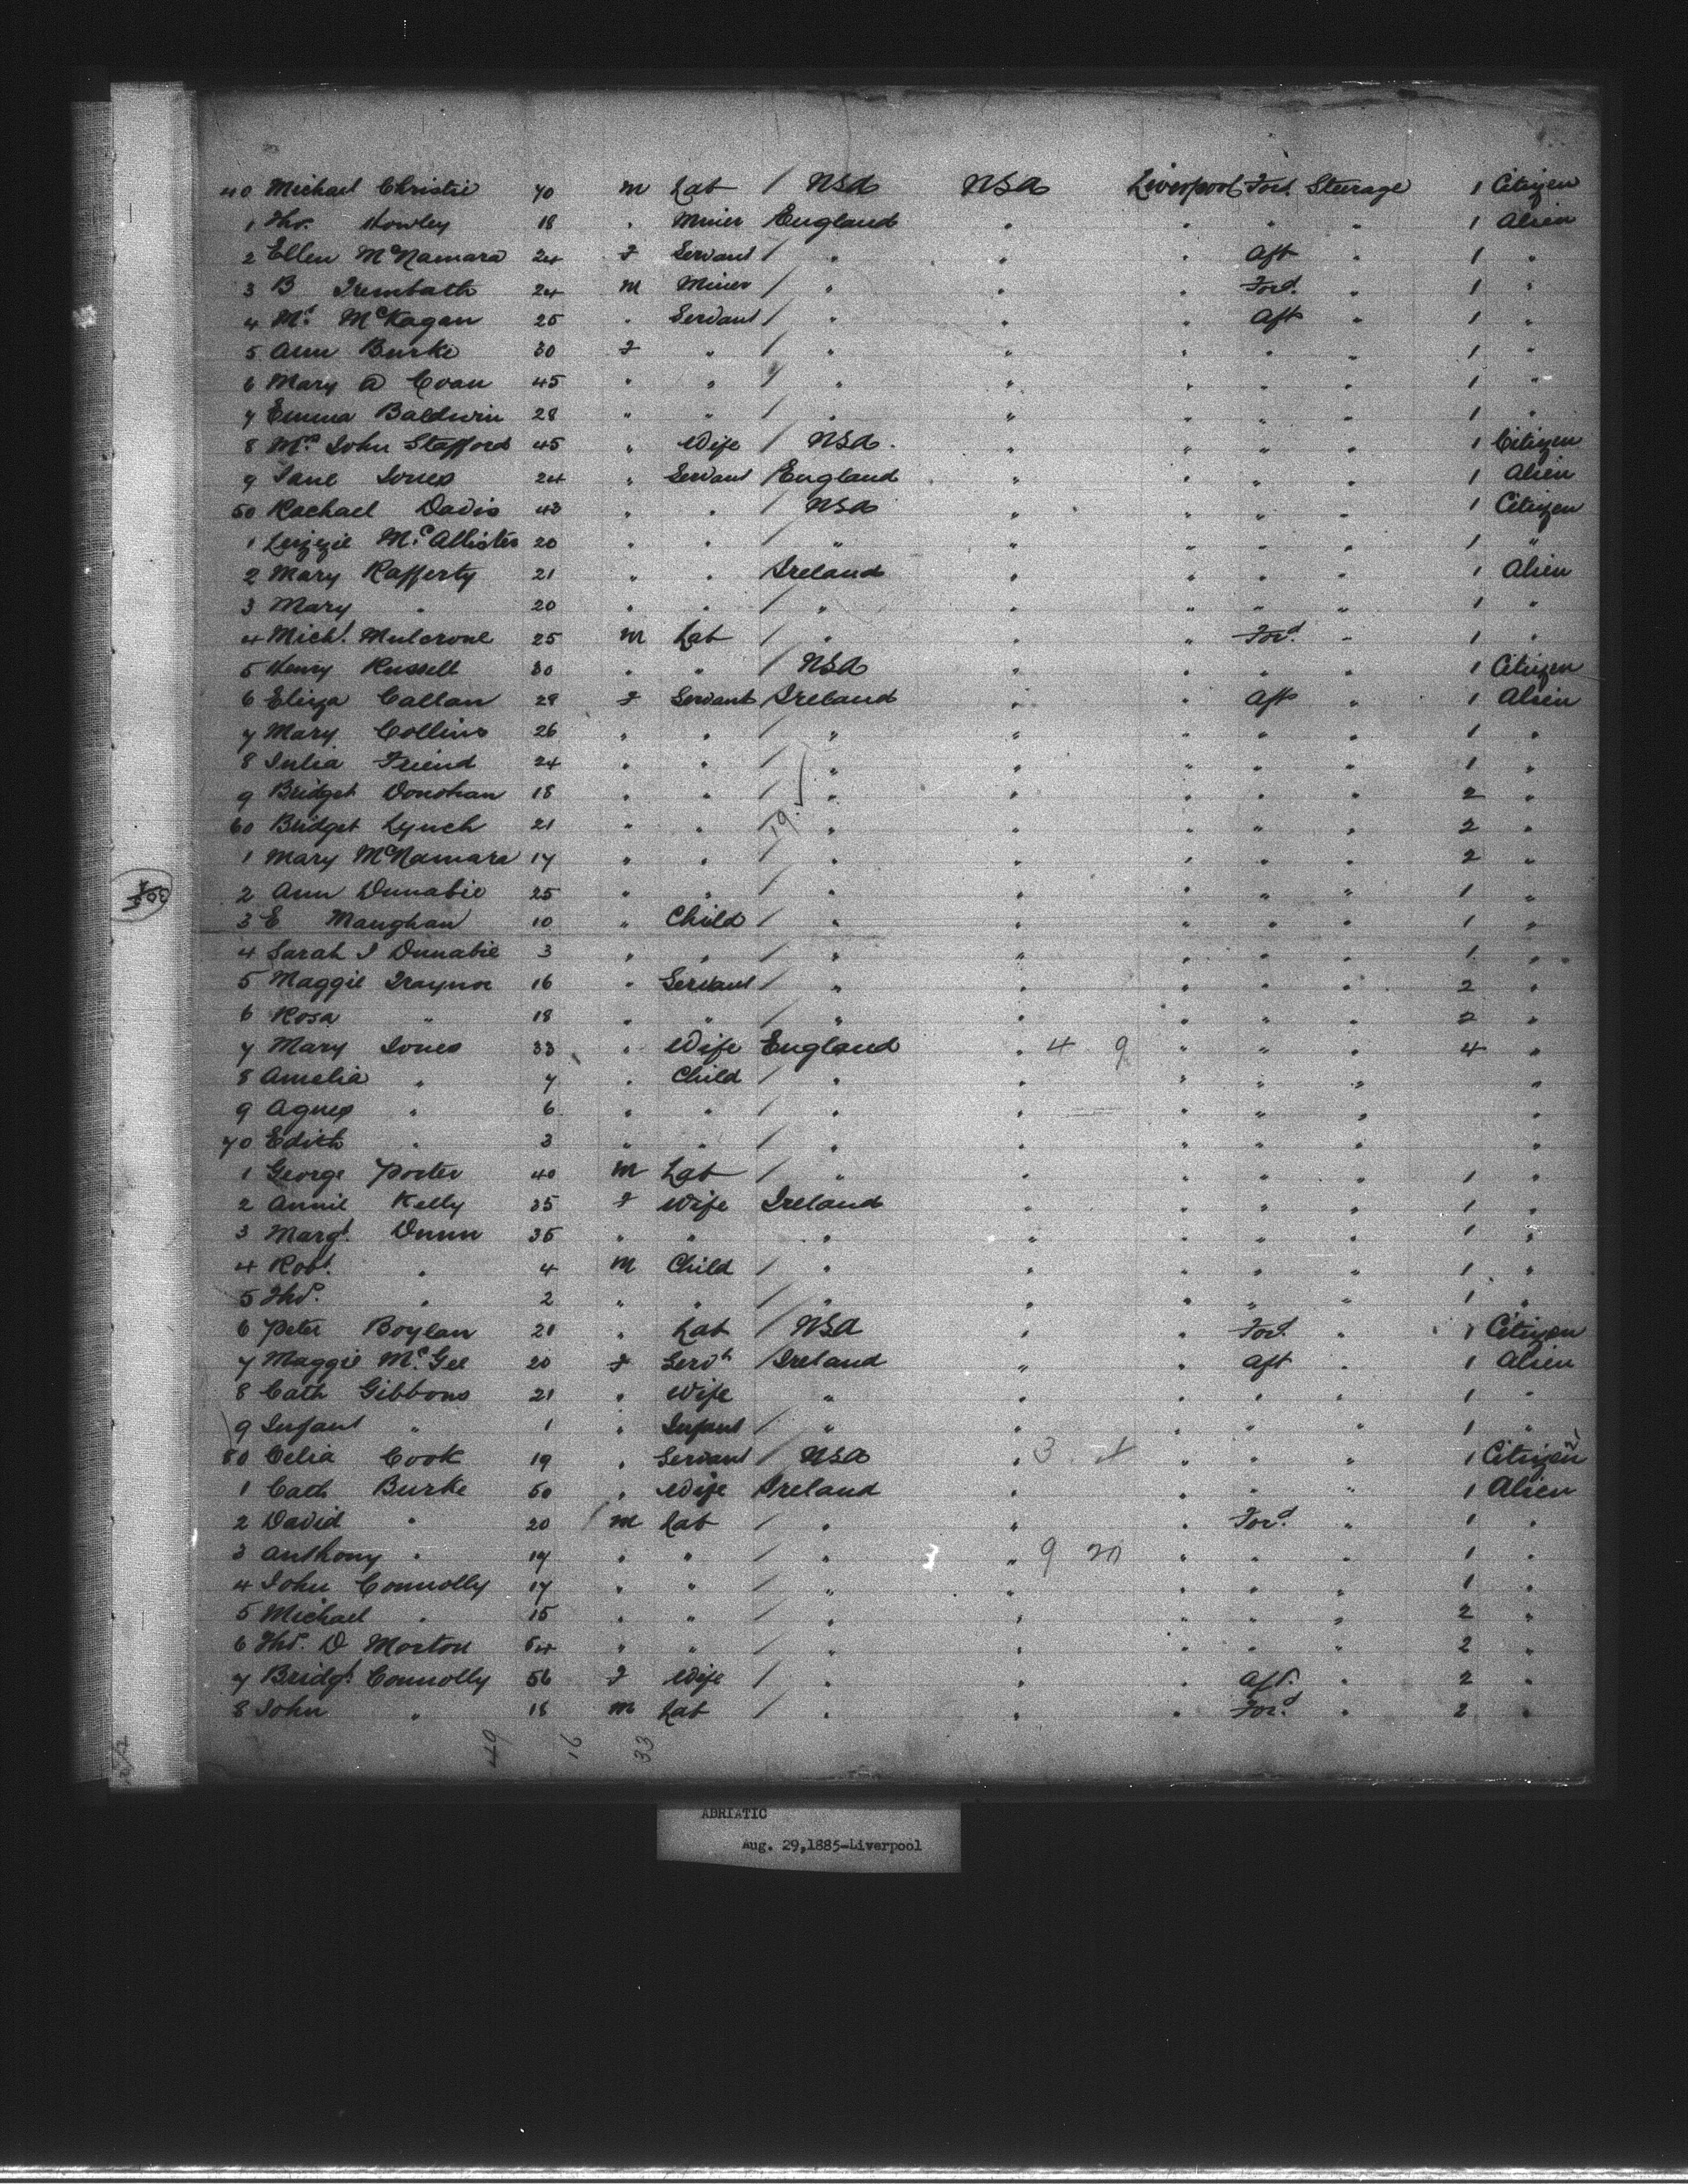 40 Michael Christie 70 m Lab / USA USA Liverpool Ford Steerage 1 Citizen
1 Tho. Howley 18 " Miner England " " " " 1 Alien
2 Ellen McNamara 24 F Servant / " " " Aft " 1 "
3 B Trembath 24 m Miner / " " " Ford. " 1 "
4 Mt. McKagan 25 " Servant / " " " Aft " 1 "
5 Ann Burke 30 F " / " " " " " 1 "
6 Mary A Coan 45 " " / " " " " " 1 "
7 Emma Baldwin 28 " " / " " " " " 1 "
8 Mrs John Stafford 45 " Wife / USA. " " " 1 Citizen
9 Jane Jones 24 " Servant England " " " " 1 Alien
50 Rachael Davis 43 " " / USA " " " " 1 Citizen
1 Lizzie McAllister 20 " " / " " " " " 1 "
2 Mary Rafferty 21 " " Ireland " " " " 1 Alien
3 Mary " 20 " " / " " " " 1 "
4 Michl. Mulcrone 25 m Lab / " " " Ford. " 1 "
5 Henry Russell 30 " " / USA " " " " 1 Citizen
6 Eliza Callan 28 F Servant Ireland " " Aft " 1 Alien
7 Mary Collins 26 " " / " " " " " 1 "
8 Julia Friend 24 " " / " " " " " 1 "
9 Bridget Donohan 18 " " / " " " " " 2 "
60 Bridget Lynch 21 " " / 19. " " " " " 2 "
1 Mary McNamara 17 " " / " " " " " 2 "
2 Ann Dunabie 25 " " / " " " " " 1 "
3 E Maughan 10 " Child / " " " " " 1 "
4 Sarah J Dunabie 3 " " / " " " " " 1 "
5 Maggie Traynor 16 " Servant / " " " " " 2 "
6 Rosa " 18 " " / " " " " " 2 "
7 Mary Jones 33 " Wife England " 4 9 " " " 4 "
8 Amelia " 7 " Child / " " " " " "
9 Agnes " 6 " " / " " " " " "
70 Edith " 3 " " / " " " " " "
1 George Porter 40 m Lab / " " " " " 1 "
2 Annie Kelly 35 F Wife Ireland " " " " 1 "
3 Margt. Dunn 35 " " " " " " " 1 "
4 Robt. " 4 m Child / " " " " " 1 "
5 Tho. " 2 " " / " " " " " 1 "
6 Peter Boylan 21 " Lab / USA " " Ford. " 1 Citizen
7 Maggie McGee 20 F Servt / Ireland " " Aft " 1 Alien
8 Cath Gibbons 21 " Wife " " " " " 1 "
9 Infant " 1 " Infant / " " " " " 1 "
80 Celia Cook 19 " Servant / USA " 3 " " " 1 Citizen
1 Cath Burke 50 " Wife Ireland " " " " 1 Alien
2 David " 20 m Lab / " " " Ford. " 1 "
3 Anthony " 19 " " / " " 9 20 " " " 1 "
4 John Connolly 17 " " / " " " " " 1 "
5 Michael " 15 " " / " " " " " 2 "
6 Tho. D Morton 54 " " / " " " " " 2 "
7 Bridgt Connolly 56 F Wife / " " " Aft. " 2 "
8 John " 18 m Lab / " " " Ford. " 2 "
49 16 33
ADRIATIC
Aug. 29,1885-Liverpool